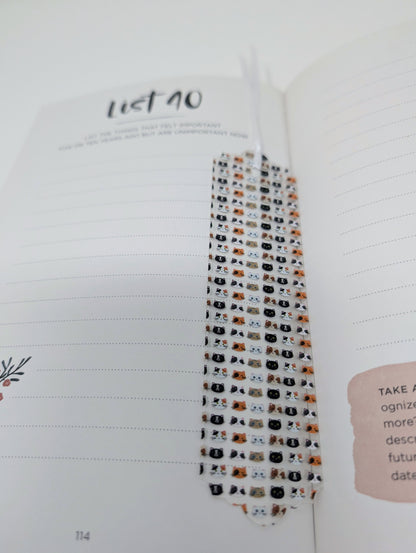 LIST 10
LIST THE THINGS THAT FELT IMPORTANT
FIVE OR TEN YEARS AGO BUT ARE UNIMPORTANT NOW
TAKE A
ognize
more?
descr
futur
date
114